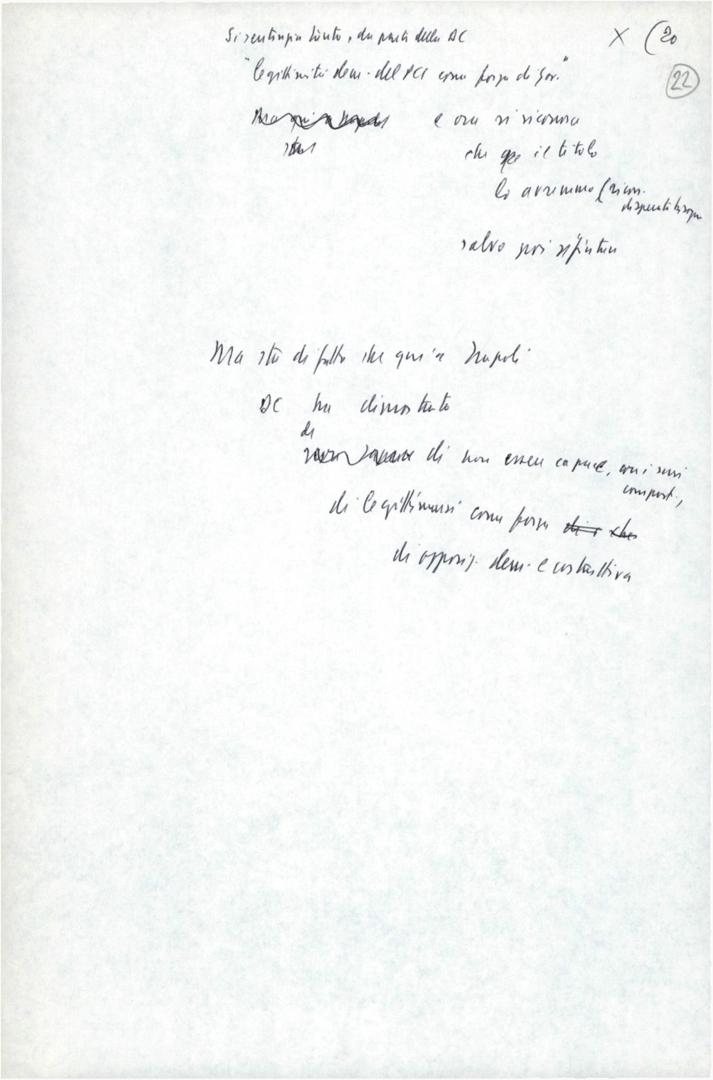 X (20
22
Si sentenzia tanto, da parte della DC
"legittimità dem. del PCI come forza di gov."
e ora si riconosca
che il titolo
lo avremmo (ricon.
salvo poi rifiutare
Ma sta di fatto che qui a Napoli
DC ha dimostrato
di
di non essere capace, con i suoi
comport.,
di legittimarsi come forza
di opposiz. dem. e costruttiva